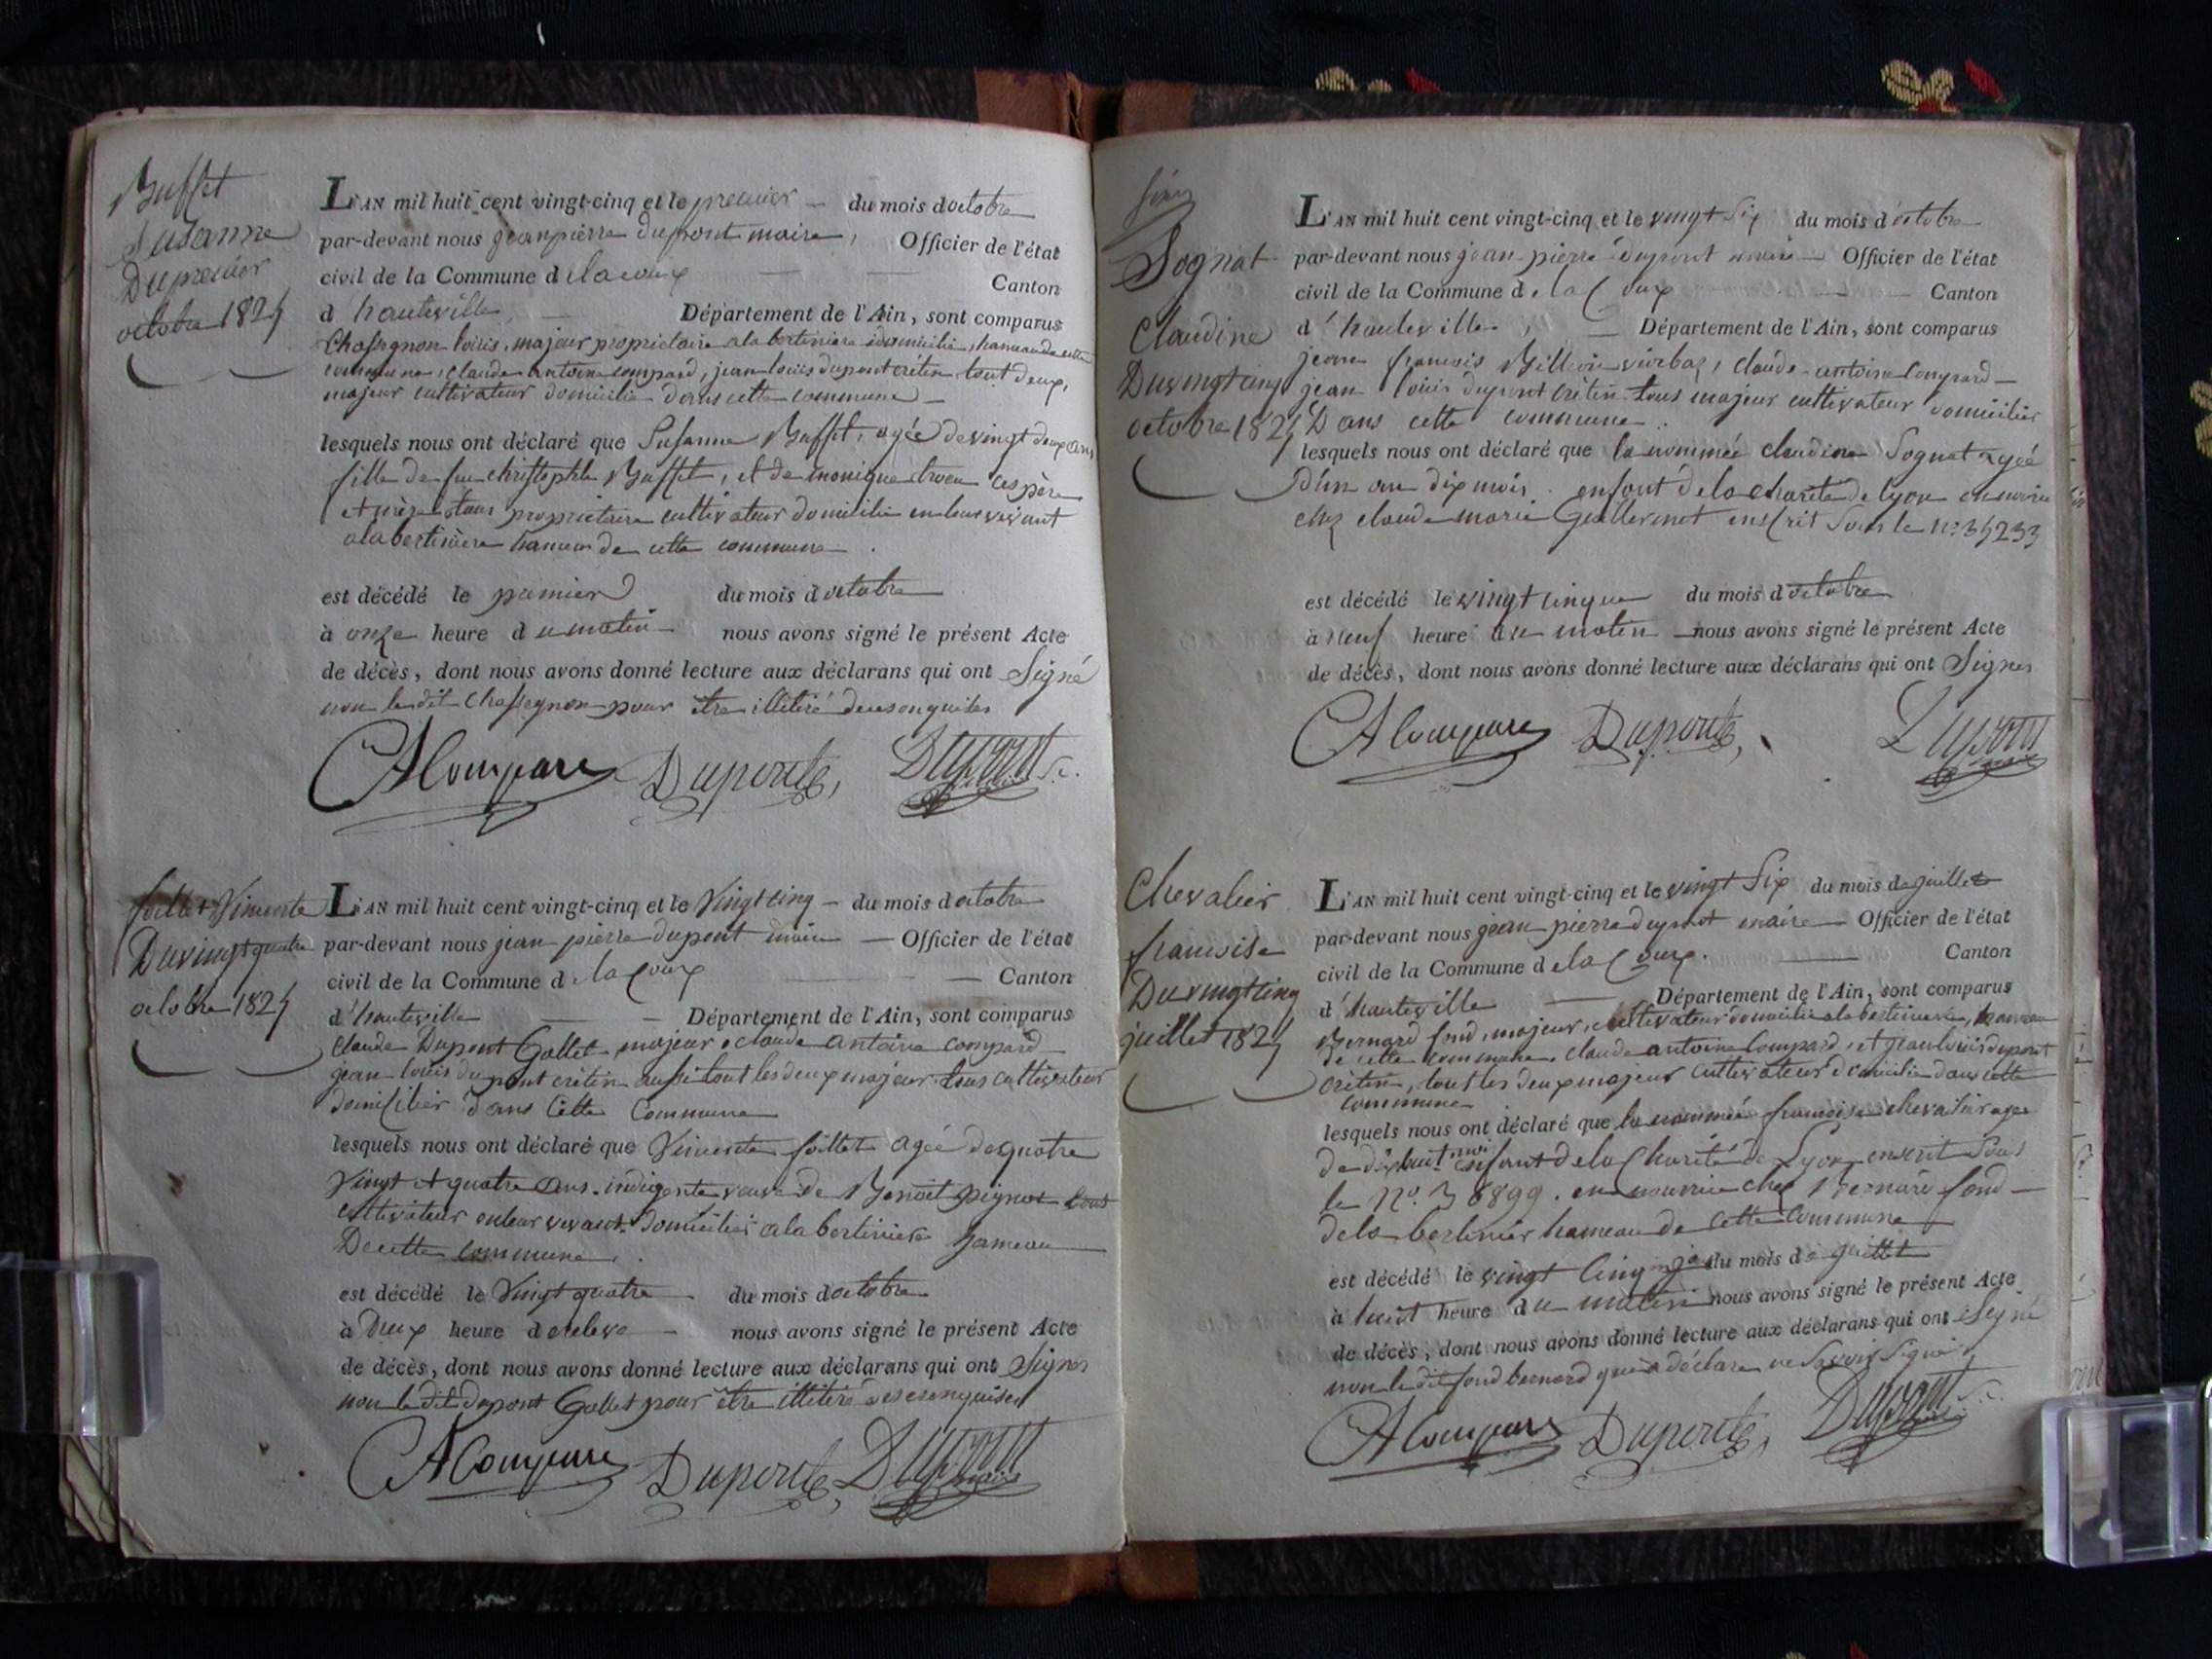 Buffet
Susanne
Du premier
octobre 1825
L'AN mil huit cent vingt-cinq et le premier — du mois d octobre
par-devant nous jean pierre dupont maire, Officier de l'état
civil de la Commune d elacoux — Canton
d hauteville, — Département de l'Ain, sont comparus
Chassegnon louis, majeur propriétaire alabertiniere domicilie, hameau de cette
commune, claude antoine compard, jean louis dupont crétin tout deux,
majeur cultivateur domicilie dans cette commune —
lesquels nous ont déclaré que Susanne Buffet, agée de vingt deux ans
fille de feu christophle Buffet, et de monique ces père
et mère tous propriétaire cultivateur domicilie en leur vivant
alabertinière hameau de cette commune.
est décédé le premier du mois d octobre
à onze heure d u matin nous avons signé le présent Acte
de décès, dont nous avons donné lecture aux déclarans qui ont Signé
non le dit Chassegnon pour être illitiré de ce enquises
CA Compard Dupont, Dupont
follet Vincente
Du vingt quatre
octobre 1825
L'AN mil huit cent vingt-cinq et le Vingt cinq — du mois d octobre
par-devant nous jean pierre dupont maire — Officier de l'état
civil de la Commune d e la Coux — Canton
d'hauteville — Département de l'Ain, sont comparus
Claude Dupont Gollet majeur, claude antoine compard
jean louis dupont crétin aussi tout les deux majeur tous cultivateur
domicilier dans cette Commune
lesquels nous ont déclaré que Vincente follet agée de quatre
Vingt et quatre ans. indigente veuve de Benoit pignot tous
cultivateur en leur vivant domicilier alabertiniere hameau
De cette commune.
est décédé le Vingt quatre du mois d octobre
à Deux heure nous avons signé le présent Acte
de décès, dont nous avons donné lecture aux déclarans qui ont Signer
non le dit dupont Gollet pour être illitiré de ce enquises
CA Compard Dupont, Dupont maire
Sognat
Claudine
Du vingt cinq
octobre 1825
L'AN mil huit cent vingt-cinq et le vingt Six du mois d'octobre
par-devant nous jean pierre dupont maire — Officier de l'état
civil de la Commune d e la Coux — Canton
d'hauteville, — Département de l'Ain, sont comparus
jean francois Billion claude antoine Compard —
jean louis dupont crétin tous majeur cultivateur domicilier
Dans cette commune.
lesquels nous ont déclaré que la nommée claudine Sognat agée
D'un an dix mois. enfant de la charité de lyon en nourice
chez claude marie Guillermet enscrit Sous le n° 35233
est décédé le vingt cinque du mois d octobre
à Neuf heure du matin — nous avons signé le présent Acte
de décès, dont nous avons donné lecture aux déclarans qui ont Signer
CA Compard Dupont, Dupont maire
Chevalier
francoise
Du vingt cinq
juillet 1825
L'AN mil huit cent vingt-cinq et le vingt Six du mois de juillet
par-devant nous jean pierre dupont maire — Officier de l'état
civil de la Commune d e la Coux. — Canton
d'hauteville — Département de l'Ain, sont comparus
Bernard fond, majeur, cultivateur domicilie alabertiniere, hameau
de cette commune, claude antoine Compard, et jean louis dupont
crétin, tout les deux majeur cultivateur domicilie dans cette
commune
lesquels nous ont déclaré que la nommée francoise chevalier agée
de dixhuit moi enfant de la Charité de Lyon enscrit Sous
le N° 36899. en nourrice chez Bernard fond —
dela bertinier hameau de cette commune
est décédé le vingt cinq du mois de juillet
à huit heure du matin nous avons signé le présent Acte
de décès, dont nous avons donné lecture aux déclarans qui ont Signé
non le dit fond bernard qui a déclaré ne Savoir Signé
CA Compard Dupont, Dupont